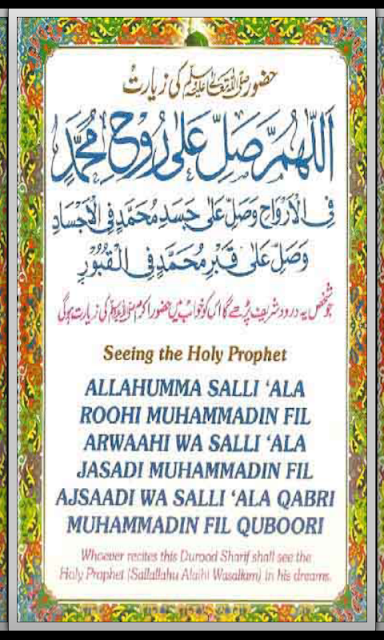 حضور ﷺ کی زیارت
اَللّٰهُمَّ صَلِّ عَلٰی رُوْحِ مُحَمَّدٍ
فِی الْاَرْوَاحِ وَصَلِّ عَلٰی جَسَدِ مُحَمَّدٍ فِی الْاَجْسَادِ
وَصَلِّ عَلٰی قَبْرِ مُحَمَّدٍ فِی الْقُبُوْرِ
جو شخص یہ درود شریف پڑھے گا اس کو خواب میں حضور اکرم ﷺ کی زیارت ہوگی
Seeing the Holy Prophet
ALLAHUMMA SALLI ‘ALA
ROOHI MUHAMMADIN FIL
ARWAAHI WA SALLI ‘ALA
JASADI MUHAMMADIN FIL
AJSAADI WA SALLI ‘ALA QABRI
MUHAMMADIN FIL QUBOORI
Whoever recites this Durood Sharif shall see the
Holy Prophet (Sallallahu Alaihi Wasallam) in his dreams.